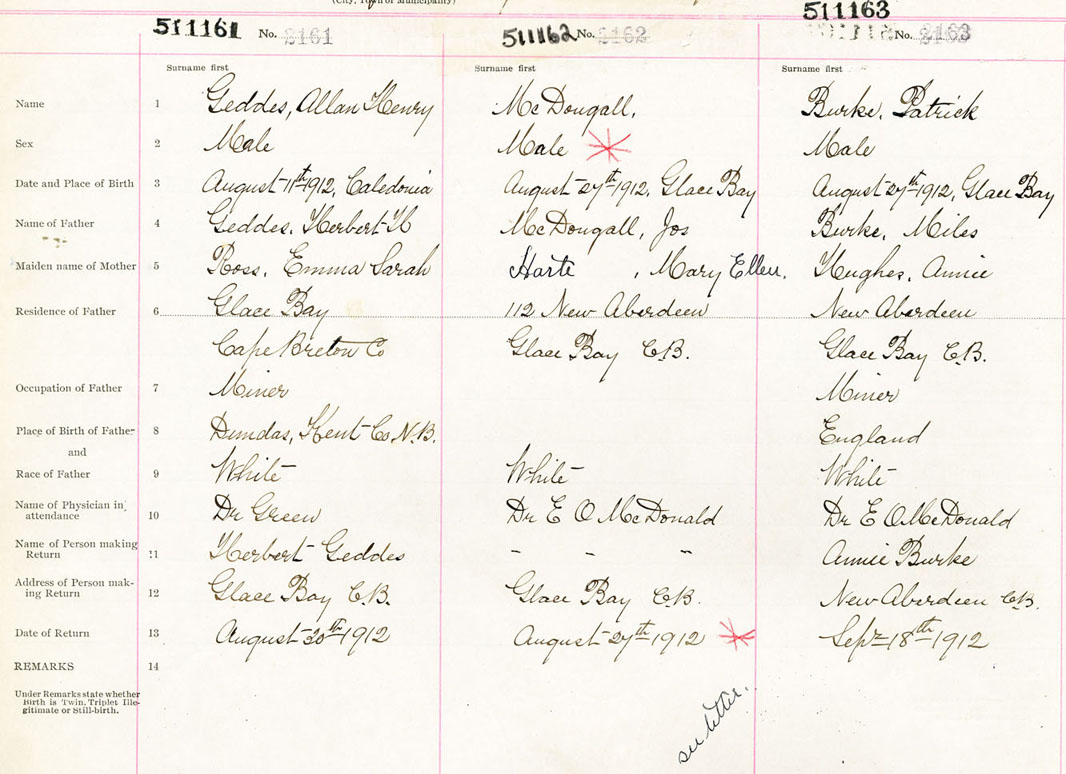 (City, Town or Municipality)
511161 No. 2161 511162 No. 2162 511163 No. 2163
Surname first Surname first Surname first
Name 1 Geddes, Allan Henry McDougall, Burke, Patrick
Sex 2 Male Male Male
Date and Place of Birth 3 August 11th 1912, Caledonia August 27th 1912, Glace Bay August 27th 1912, Glace Bay
Name of Father 4 Geddes, Herbert H McDougall, Jos Burke, Miles
Maiden name of Mother 5 Ross, Emma Sarah Harte , Mary Ellen. Hughes, Annie
Residence of Father 6 Glace Bay 112 New Aberdeen New Aberdeen
Cape Breton Co Glace Bay C.B. Glace Bay C.B.
Occupation of Father 7 Miner Miner
Place of Birth of Father 8 Dundas, Kent Co N.B. England
and
Race of Father 9 White White White
Name of Physician in attendance 10 Dr Green Dr E O McDonald Dr E O McDonald
Name of Person making Return 11 Herbert Geddes - - " Annie Burke
Address of Person making Return 12 Glace Bay C.B. Glace Bay C.B. New Aberdeen C.B.
Date of Return 13 August 30th 1912 August 27th 1912 Sept 18th 1912
REMARKS 14
Under Remarks state whether
Birth is Twin, Triplet Ille-
gitimate or Still-birth.
see letter.